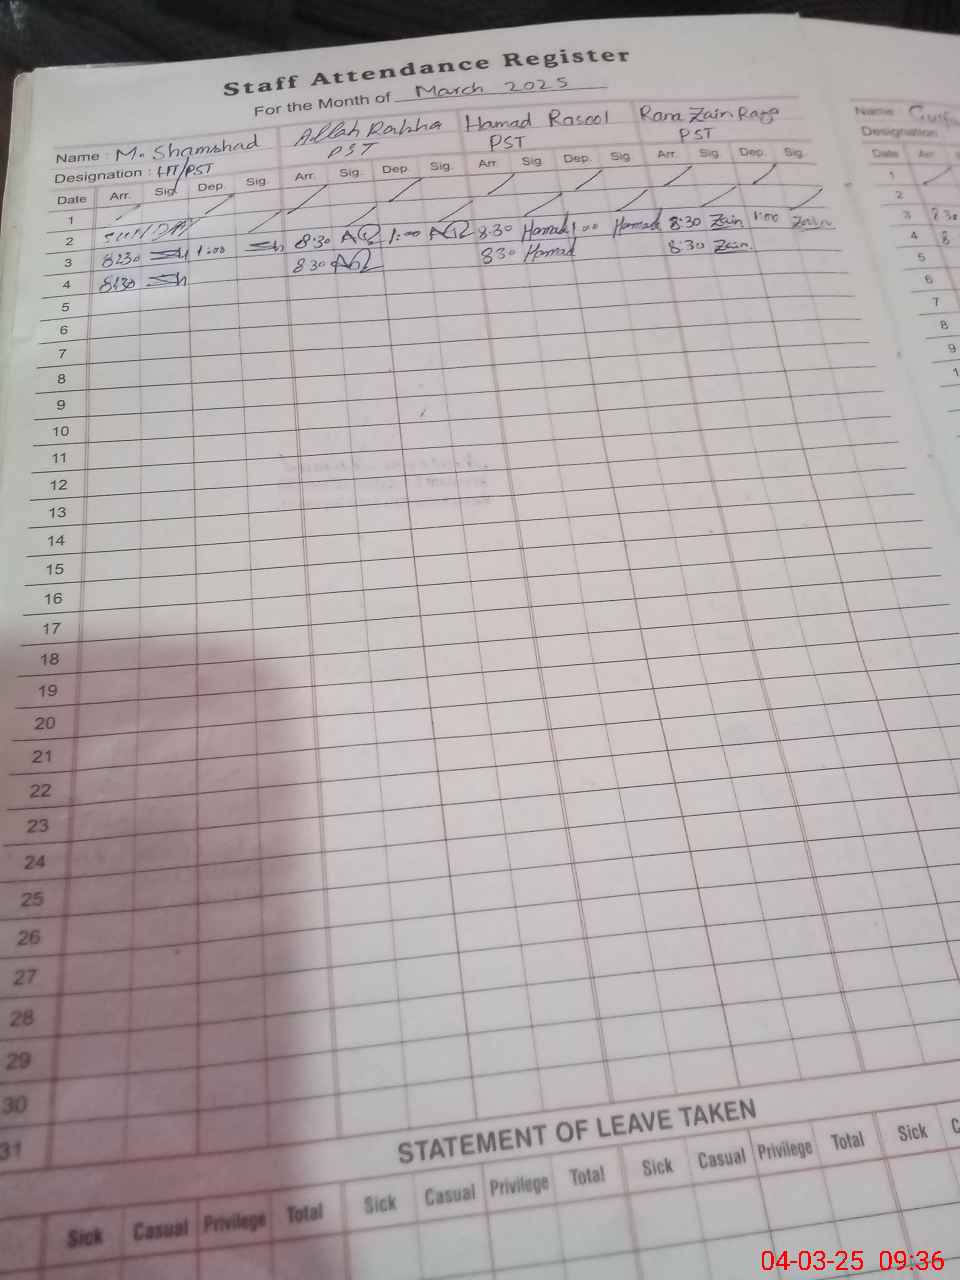 Staff Attendance Register
For the Month of March 2025
Name : M. Shamshad Allah Rakha Hamad Rasool Rana Zain Raza Name :
Designation : HT/PST PST PST PST Designation
Date Arr. Sig. Dep. Sig. Arr. Sig. Dep. Sig. Arr. Sig. Dep. Sig. Arr. Sig. Dep. Sig. Date Arr.
1 1
2 SUNDAY 2
3 8:30 Sh 1:00 Sh 8:30 AR 1:00 AR 8:30 Hamad 1:00 Hamad 8:30 Zain 1:00 Zain 3 8:30
4 8:30 Sh 8:30 AR 8:30 Hamad 8:30 Zain 4 8
5 5
6 6
7 7
8 8
9 9
10 1
11
12
13
14
15
16
17
18
19
20
21
22
23
24
25
26
27
28
29
30
31
STATEMENT OF LEAVE TAKEN
Sick Casual Privilege Total Sick Casual Privilege Total Sick Casual Privilege Total Sick C
04-03-25 09:36